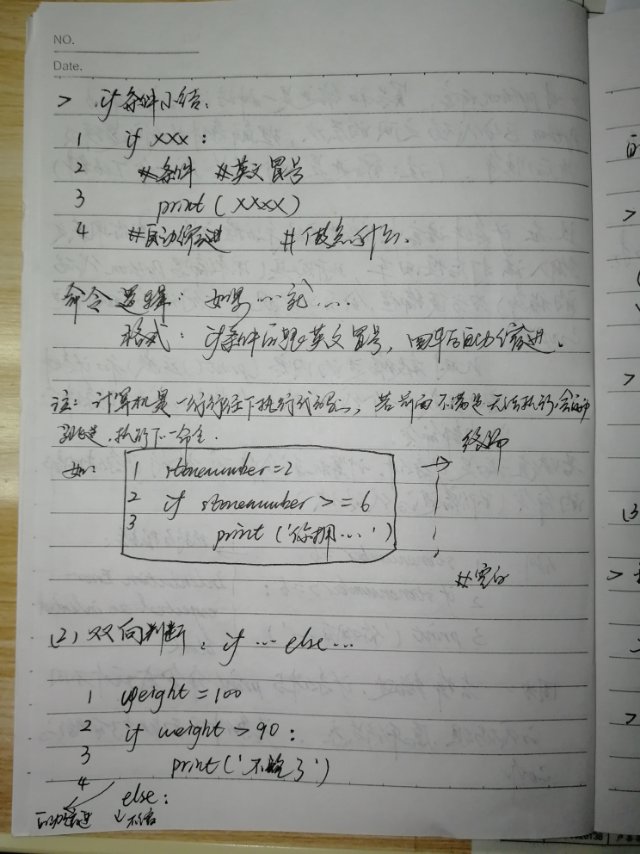 NO.
Date.
> if条件小结:
1 if xxx :
2 #条件 #英文冒号
3 print ( xxxx )
4 #自动缩进 #做些什么.
命令逻辑: 如果…就….
格式: if条件后跟英文冒号, 回车后自动缩进.
注: 计算机是一行行往下执行代码, 若前面不满足无法执行, 会
执行下一命令.
如: 1 stonenumber=2 → 终端
2 if stonenumber >= 6
3 print ('你拥…')
#空白
(2) 双向判断: if … else…
1 weight = 100
2 if weight > 90 :
3 print('不吃了')
4 else:
自动缩进 ↓